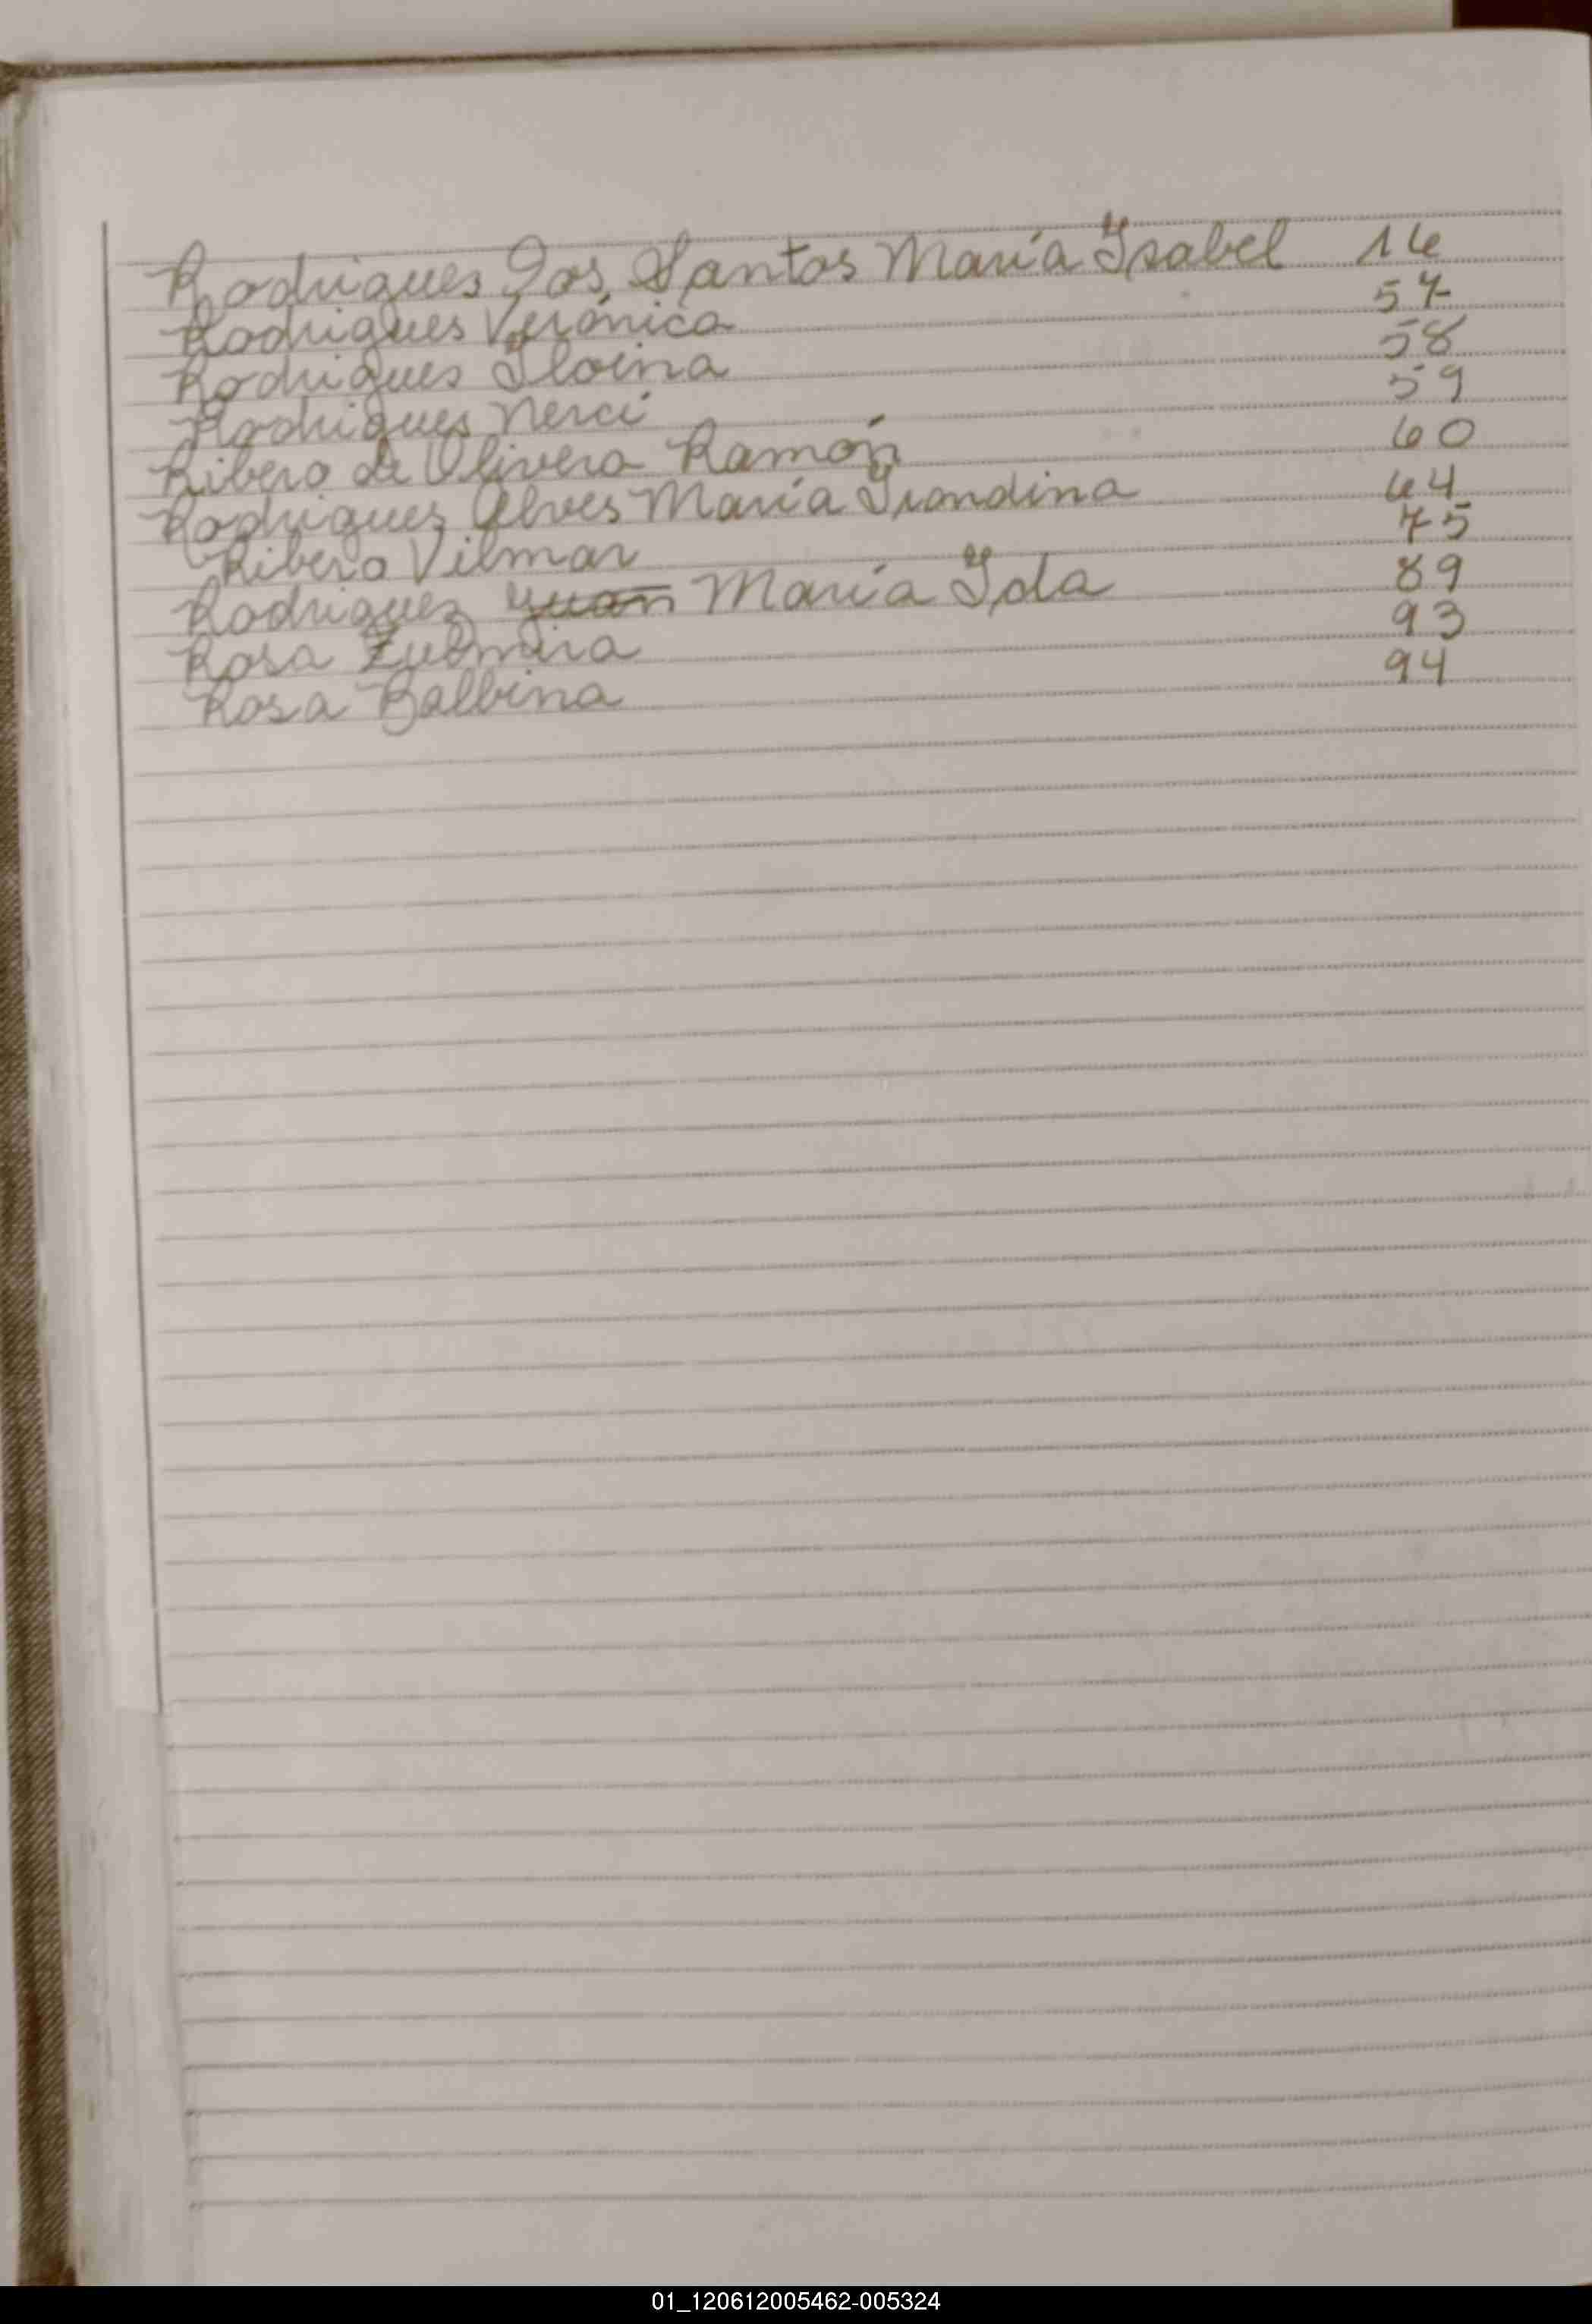 Rodrigues Dos Santos María Isabel 16
Rodrigues Verónica 57
Rodrigues Iloina 58
Rodrigues Nerci 59
Ribero de Olivera Ramón 60
Rodrigues Alves María 64
Ribero Vilmar 75
Rodriguez Juan María Ida 89
Rosa Zulmira 93
Rosa Balbina 94
01_120612005462-005324